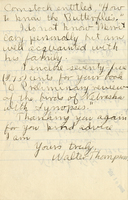 Comstock entitled, "How
to know the Butterflies."
I do not know Mr.
Cary personally but am
well acquainted with
his father.
I enclose seventy five
(75) cents for your book
"A Preliminary review
of the birds of Nebraska
with Synopsis."
Thanking you again
for your kind advice
I am
Yours truly,
Wallie Thompson